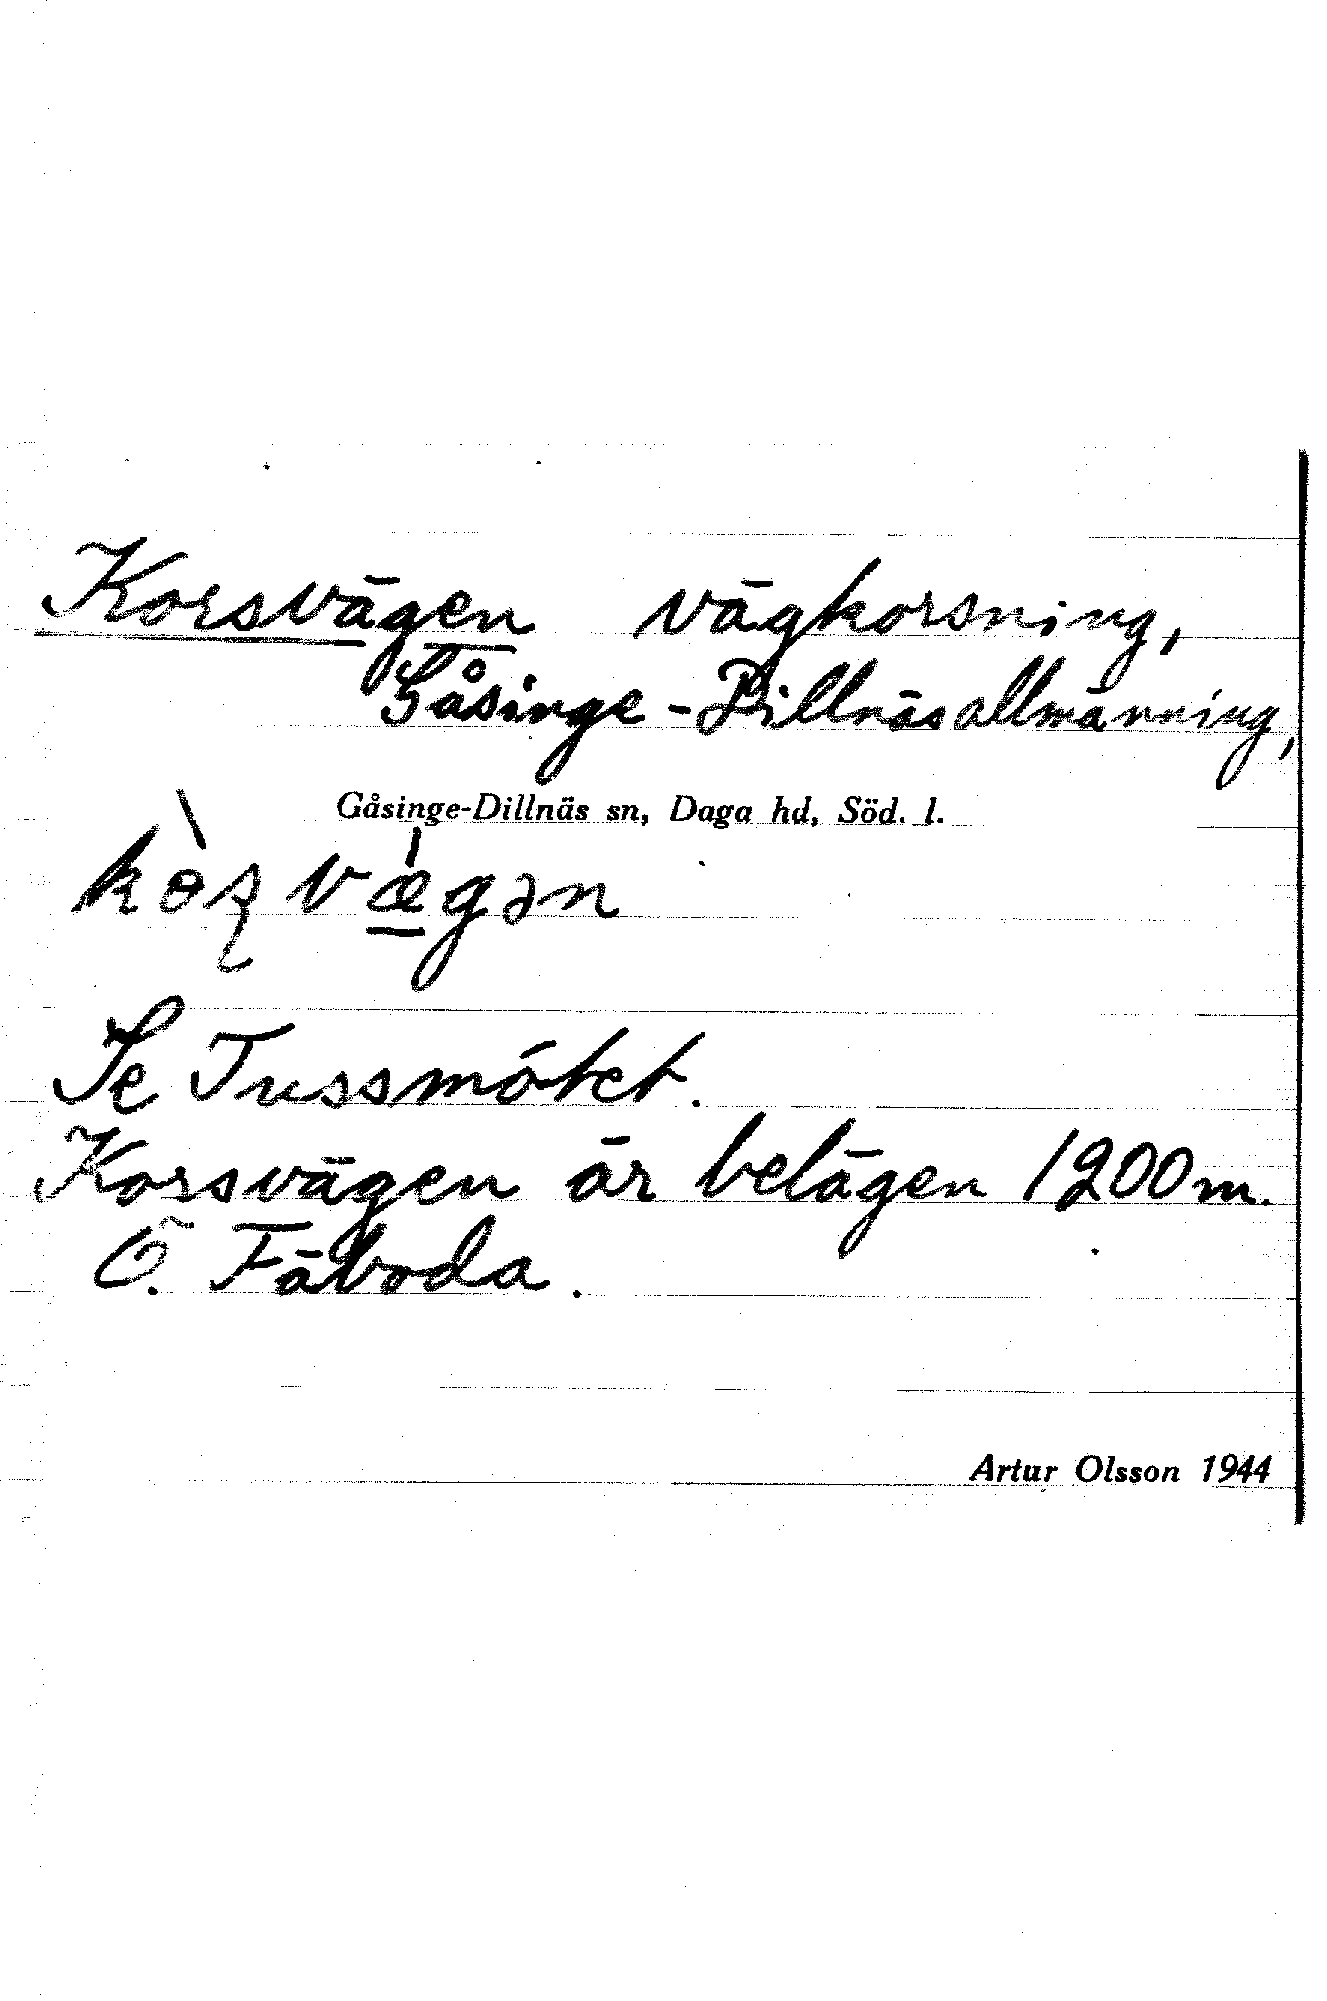 Korsvägen vägkorsning,
Gåsinge-Dillnäs allmänning,
Gåsinge-Dillnäs sn, Daga hd, Söd. l.
kòʂvæ̲̀gən
Se Tussmötet.
Korsvägen är belägen 1200 m.
Ö. Fäboda.
Artur Olsson 1944